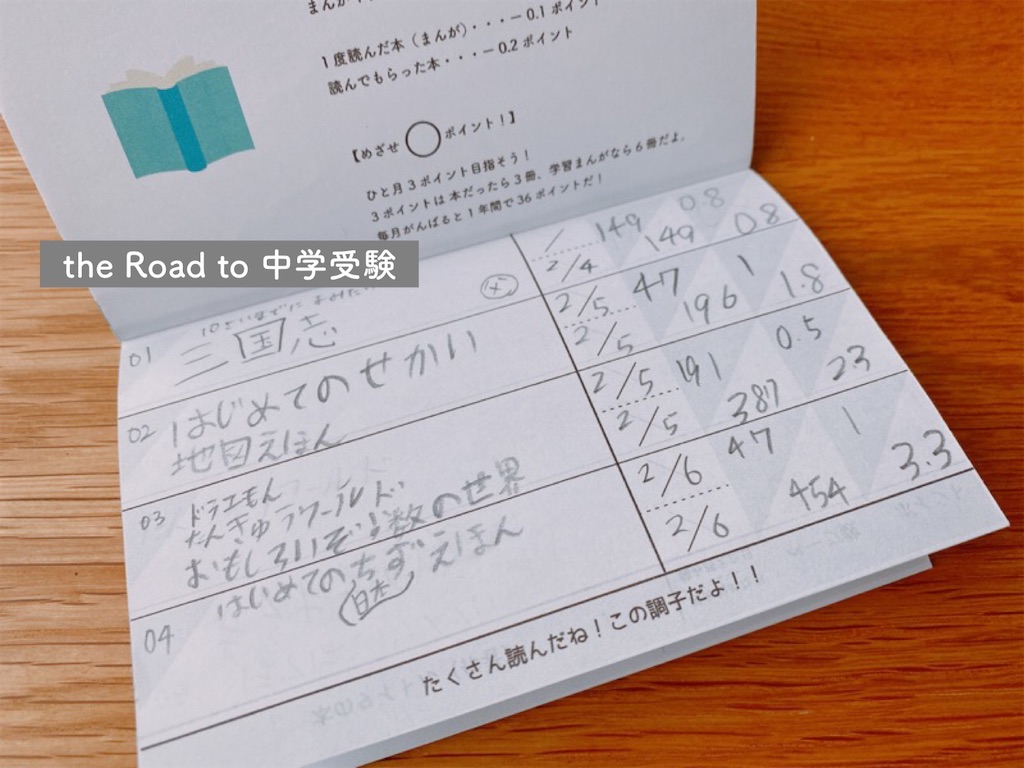 まんが
1度読んだ本（まんが）・・・ー0.1ポイント
読んでもらった本・・・ー0.2ポイント
【めざせ◯ポイント！】
ひと月3ポイント目指そう！
3ポイントは本だったら3冊、学習まんがなら6冊だよ。
毎月がんばると1年間で36ポイントだ！
the Road to 中学受験
01 三国志 / 149 0.8
2/4 149 0.8
02 はじめてのせかい 2/5 47 1
地図えほん 2/5 196 1.8
03 ドラえもん 2/5 191 0.5
たんきゅうワールド 2/5 387 23
おもしろいぞ!数の世界
04 はじめてのちずえほん 2/6 47 1
(日本) 2/6 454 3.3
たくさん読んだね！この調子だよ！！